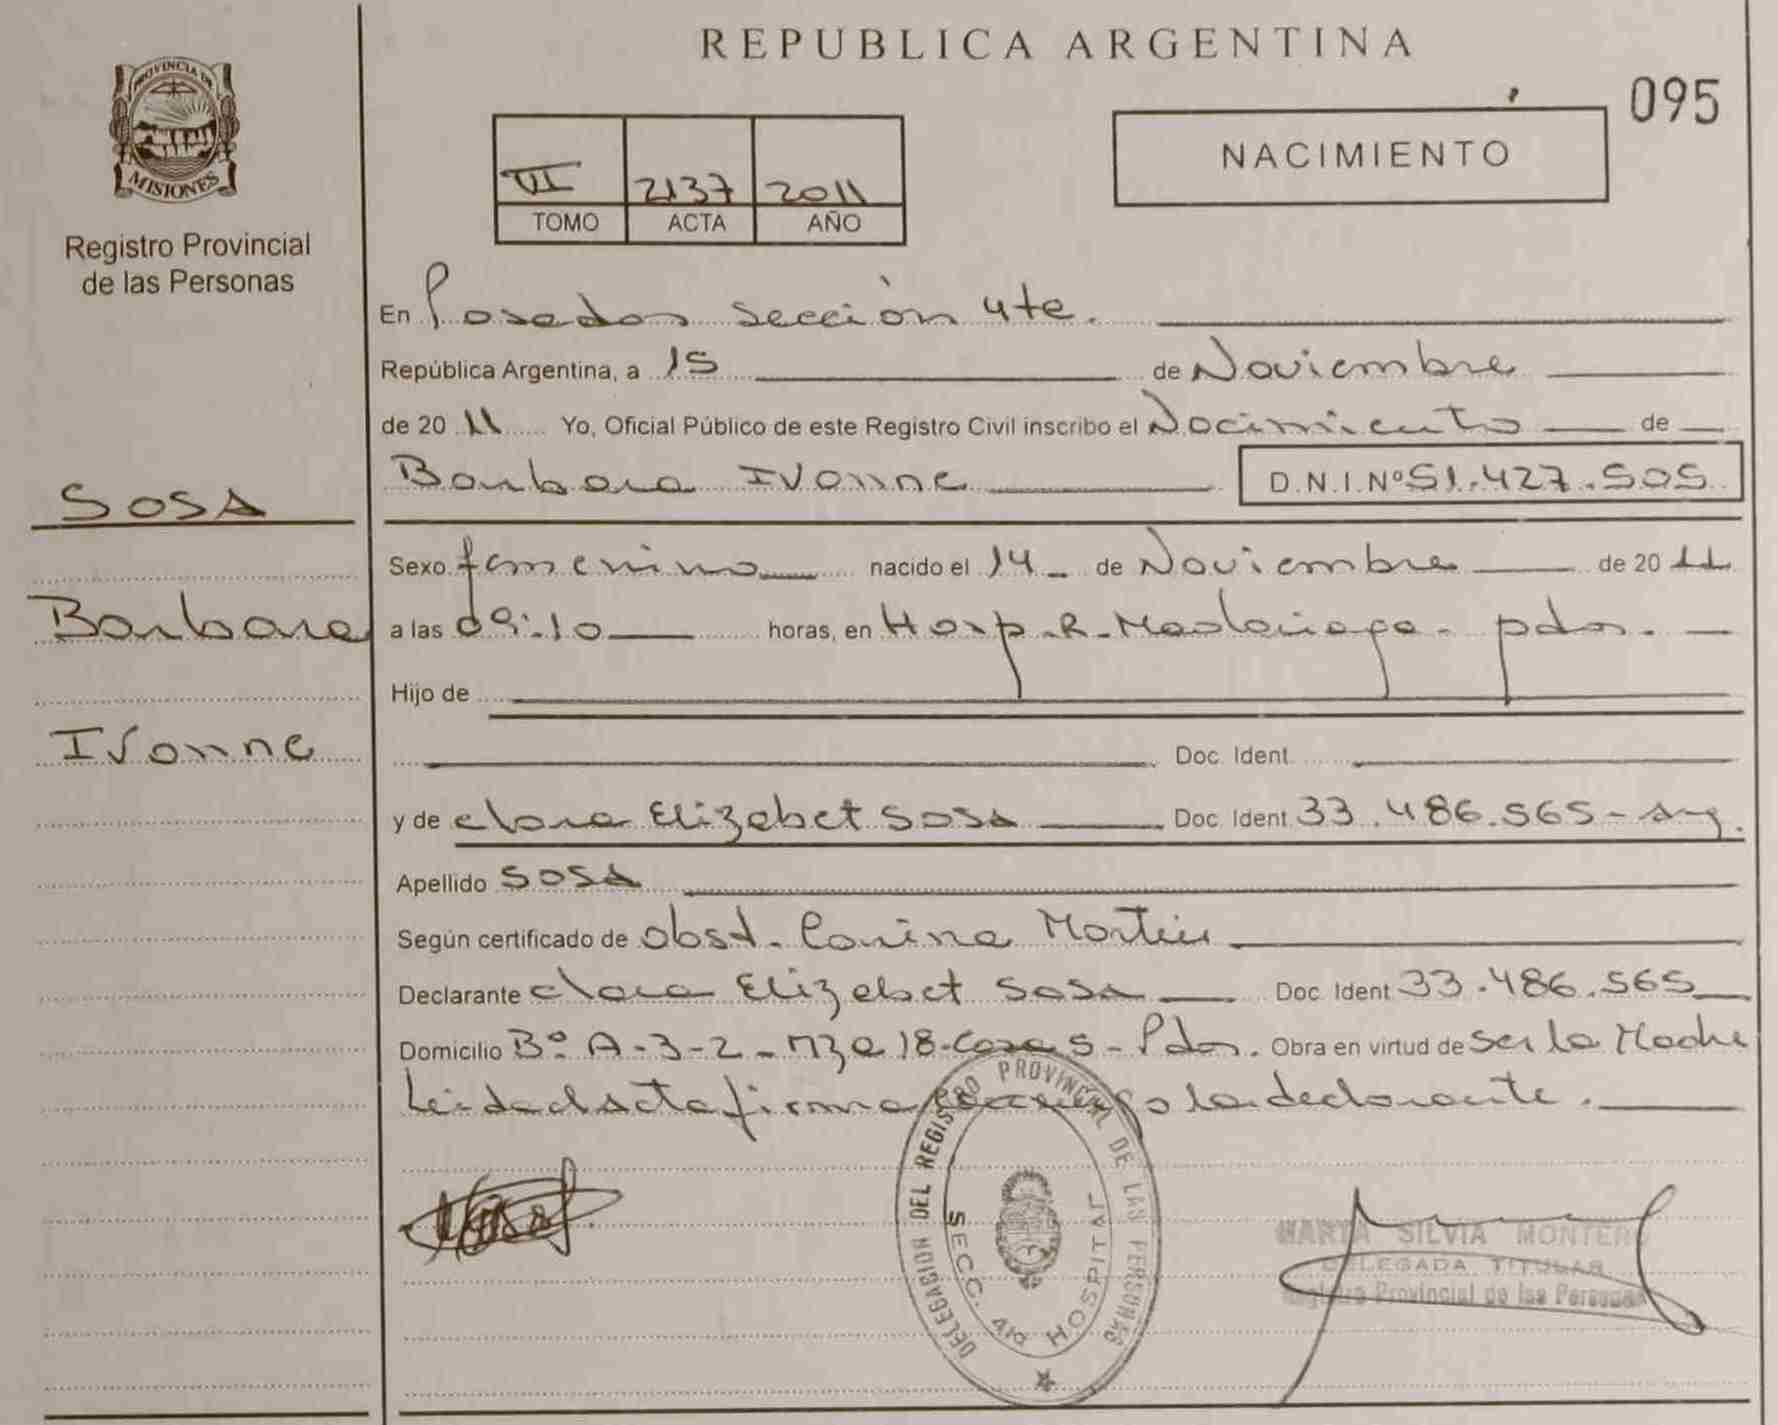 REPUBLICA ARGENTINA
095
PROVINCIA DE
MISIONES
Registro Provincial
de las Personas
NACIMIENTO
VI 2137 2011
TOMO ACTA AÑO
En Posadas sección 4ta.
República Argentina, a 15 de Noviembre
de 20 11 Yo, Oficial Público de este Registro Civil inscribo el Nacimiento de
Barbara Ivonne D.N.I. Nº 51.427.505
SOSA
Barbara
Ivonne
Sexo femenino nacido el 14 de Noviembre de 20 11
a las 09:10 horas, en Hosp. R. Madariaga - pdas.
Hijo de
Doc. Ident.
y de Clara Elizabet SOSA Doc. Ident. 33.486.565 - arg.
Apellido SOSA
Según certificado de obst. Carina
Declarante Clara Elizabet SOSA Doc. Ident 33.486.565
Domicilio Bº A-3-2 - mza 18-casa 5 - Pdas. Obra en virtud de ser la Madre
Leida el acta firma la declarante.
DELEGACION DEL REGISTRO PROVINCIAL DE LAS PERSONAS
SECC. 4ta HOSPITAL
MARTA SILVIA MONTERO
DELEGADA TITULAR
Registro Provincial de las Personas